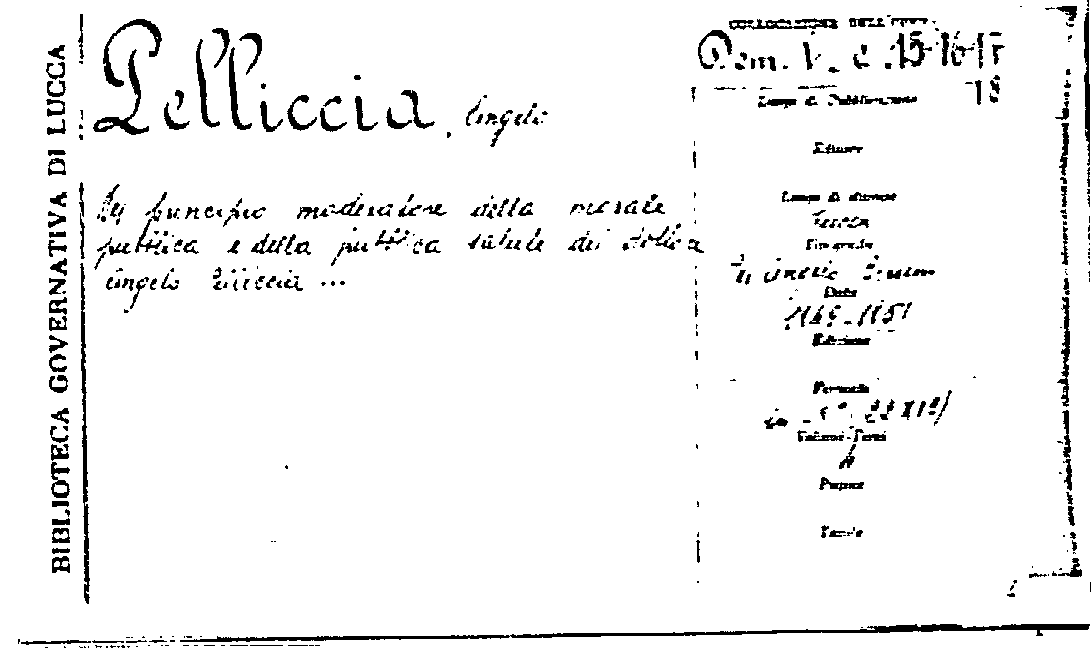 BIBLIOTECA GOVERNATIVA DI LUCCA
Pelliccia, Angelo
Del principio moderatore della morale
pubblica e della pubblica salute del dottor
Angelo Pelliccia ...
COLLOCAZIONE DELL'OPERA
15-16-17
18
Luogo di Pubblicazione
Editore
Luogo di stampa
Lucca
Stamperia
Data
1849-1851
Edizione
Formato
in 8°
Volumi-Tomi
4
Pagine
Tavole